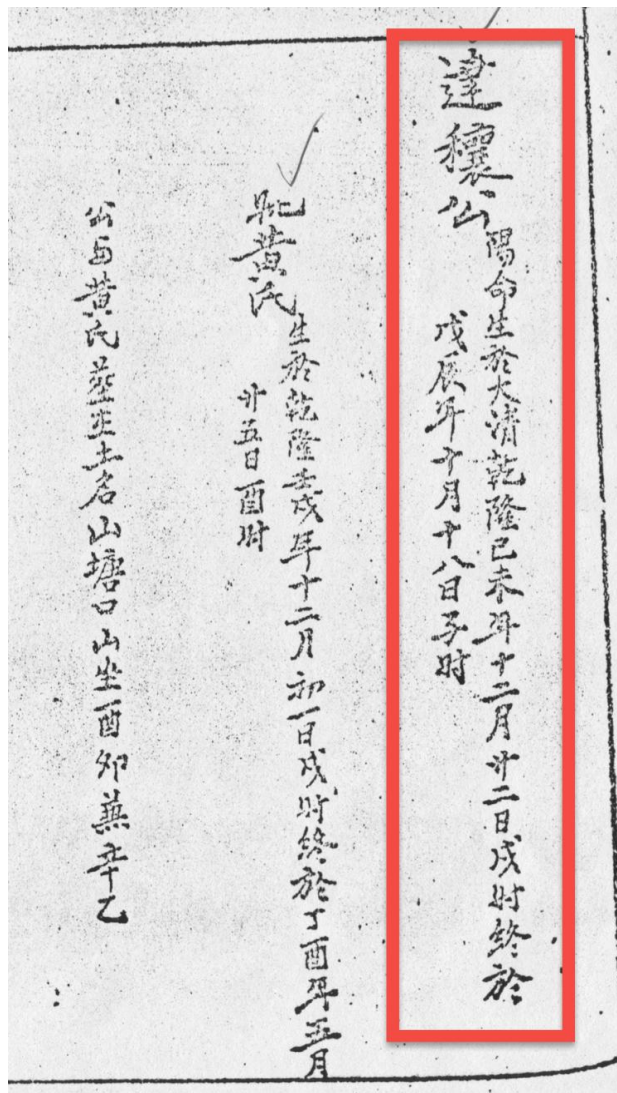 達穰公
陽命生於大清乾隆己未年十二月廿二日戌時終於
戊辰年十月十八日子时
妣黄氏
生於乾隆壬戌年十二月初一日戌时終於丁酉年五月
廿五日酉时
公与黄氏葬土名山塘口山坐酉卯兼辛乙